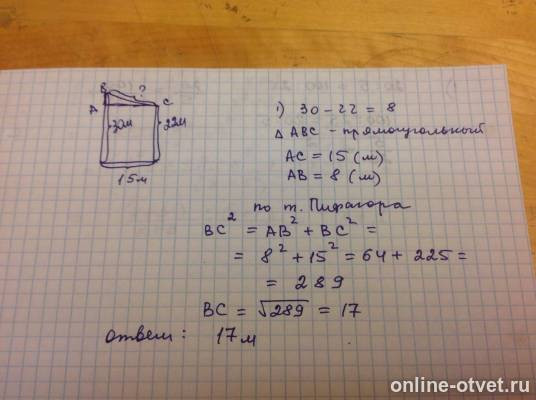 B ?
A C
30м 22м
15м
1) 30 - 22 = 8
Δ ABC - прямоугольный
AC = 15 (м)
AB = 8 (м)
по т. Пифагора
BC² = AB² + BC² =
= 8² + 15² = 64 + 225 =
= 289
BC = √289 = 17
ответ: 17м
online-otvet.ru